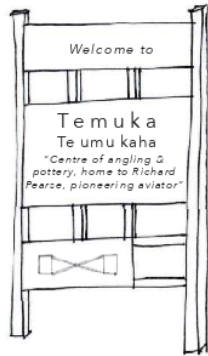 Welcome to
Temuka
Te umu kaha
"Centre of angling &
pottery, home to Richard
Pearse, pioneering aviator"